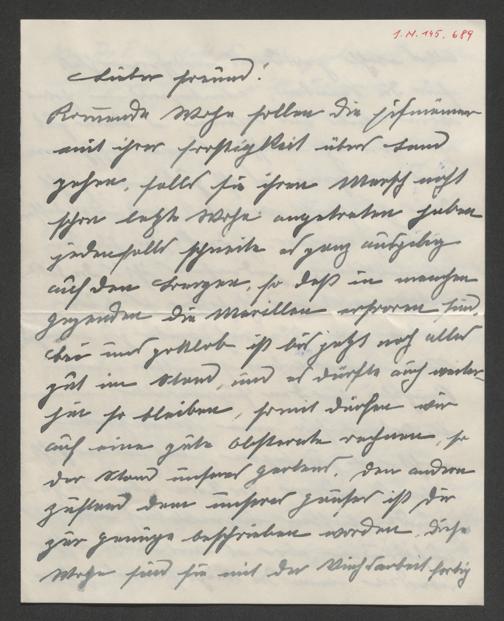 1.N. 145.689
Lieber Freund!
Kommende Woche sollen die Eismänner
mit ihrer Frostigkeit übers Land
gehen, falls sie ihren Marsch nicht
schon letzte Woche angetreten haben
jedenfalls schneite es ganz ausgiebig
auf den Bergen, so daß in manchen
Gegenden die Marillen erfroren sind,
bei uns gottlob ist bis jetzt noch alles
gut im Stand, und es dürfte auch weiter-
hin so bleiben, somit dürfen wir
auf eine gute Obsternte rechnen, so
der Stand unseres Gartens. Den andern
Zustand den unseres Hauses ist Dir
zur Genüge beschrieben worden. Diese
Woche sind sie mit der fertig